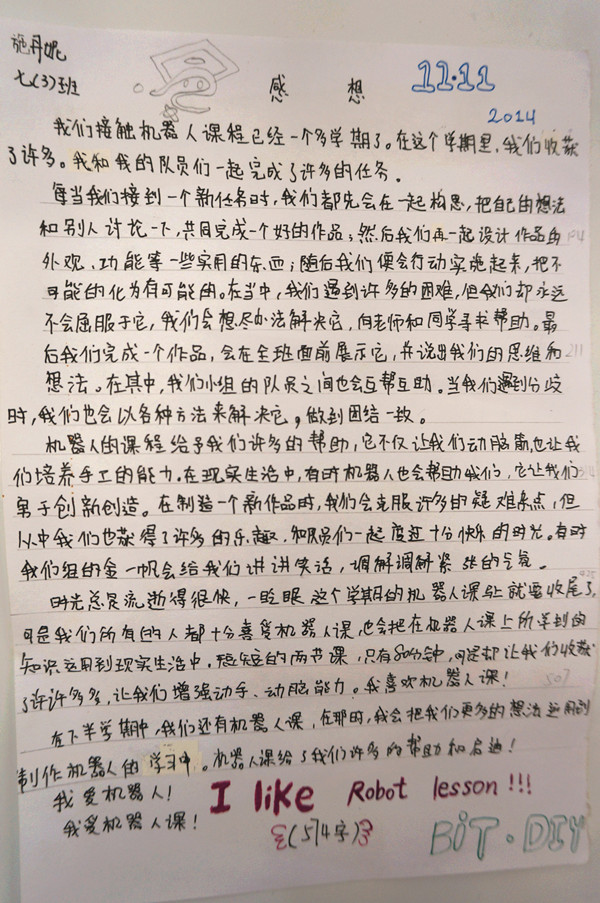 施丹妮
七(3)班
感 想
11.11
2014
我们接触机器人课程已经一个多学期了。在这个学期里,我们收获
了许多。我和我的队员们一起完成了许多的任务。
每当我们接到一个新任务时,我们都先会在一起构思,把自己的想法
和别人讨论一下,共同完成一个好的作品;然后我们再一起设计作品的
外观、功能等一些实用的东西;随后我们便会行动实施起来,把不
可能的化为有可能的。在当中,我们遇到许多的困难,但我们却永远
不会屈服于它,我们会想尽办法解决它,向老师和同学寻求帮助。最
后我们完成一个作品,会在全班面前展示它,并说出我们的思维和
想法。在其中,我们小组的队员之间也会互帮互助。当我们遇到分歧
时,我们也会以各种方法来解决它,做到团结一致。
机器人的课程给予我们许多的帮助,它不仅让我们动脑筋,也让我
们培养手工的能力。在现实生活中,有时机器人也会帮助我们,它让我们
勇于创新创造。在制造一个新作品时,我们会克服许多的疑难杂点,但
从中我们也获得了许多的乐趣,和队员们一起度过十分快乐的时光。有时
我们组的金一帆会给我们讲讲笑话,调解调解紧张的气氛。
时光总是流逝得很快,一眨眼这个学期的机器人课马上就要收尾了,
可是我们所有的人都十分喜爱机器人课,也会把在机器人课上所学到的
知识运用到现实生活中。短短的两节课,只有80分钟,可是却让我们收获
了许许多多,让我们增强动手、动脑能力。我喜欢机器人课!
507
在下半学期中,我们还有机器人课,在那时,我会把我们更多的想法运用到
制作机器人的学习中。机器人课给了我们许多的帮助和启迪!
我爱机器人!
我爱机器人课!
I like Robot lesson!!!
(574字)
BiT·DIY